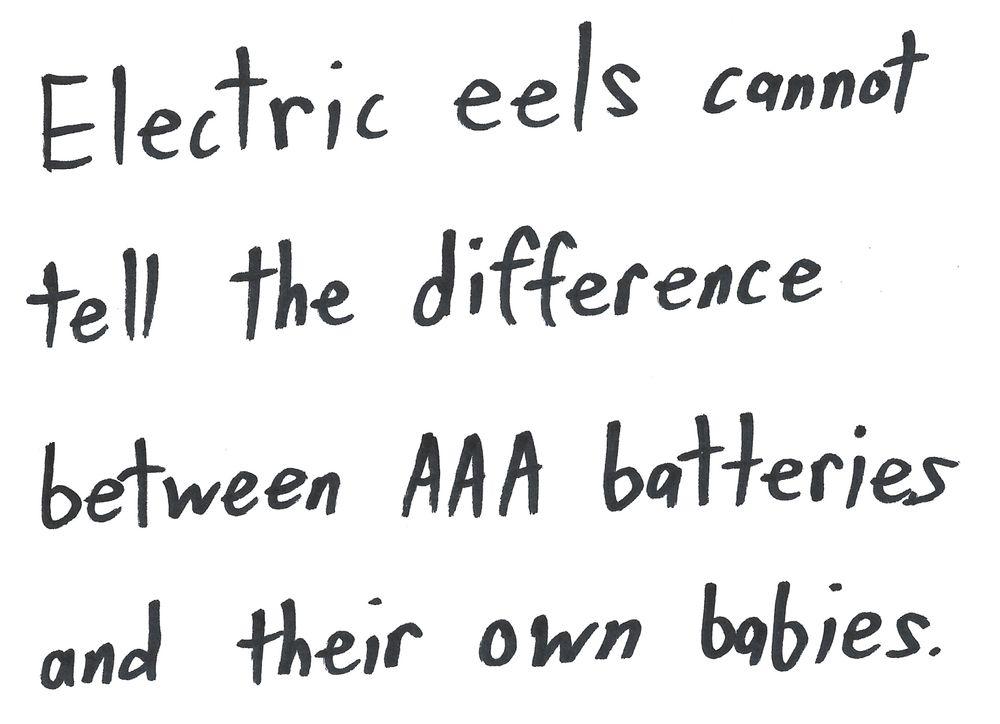 Electric eels cannot
tell the difference
between AAA batteries
and their own babies.